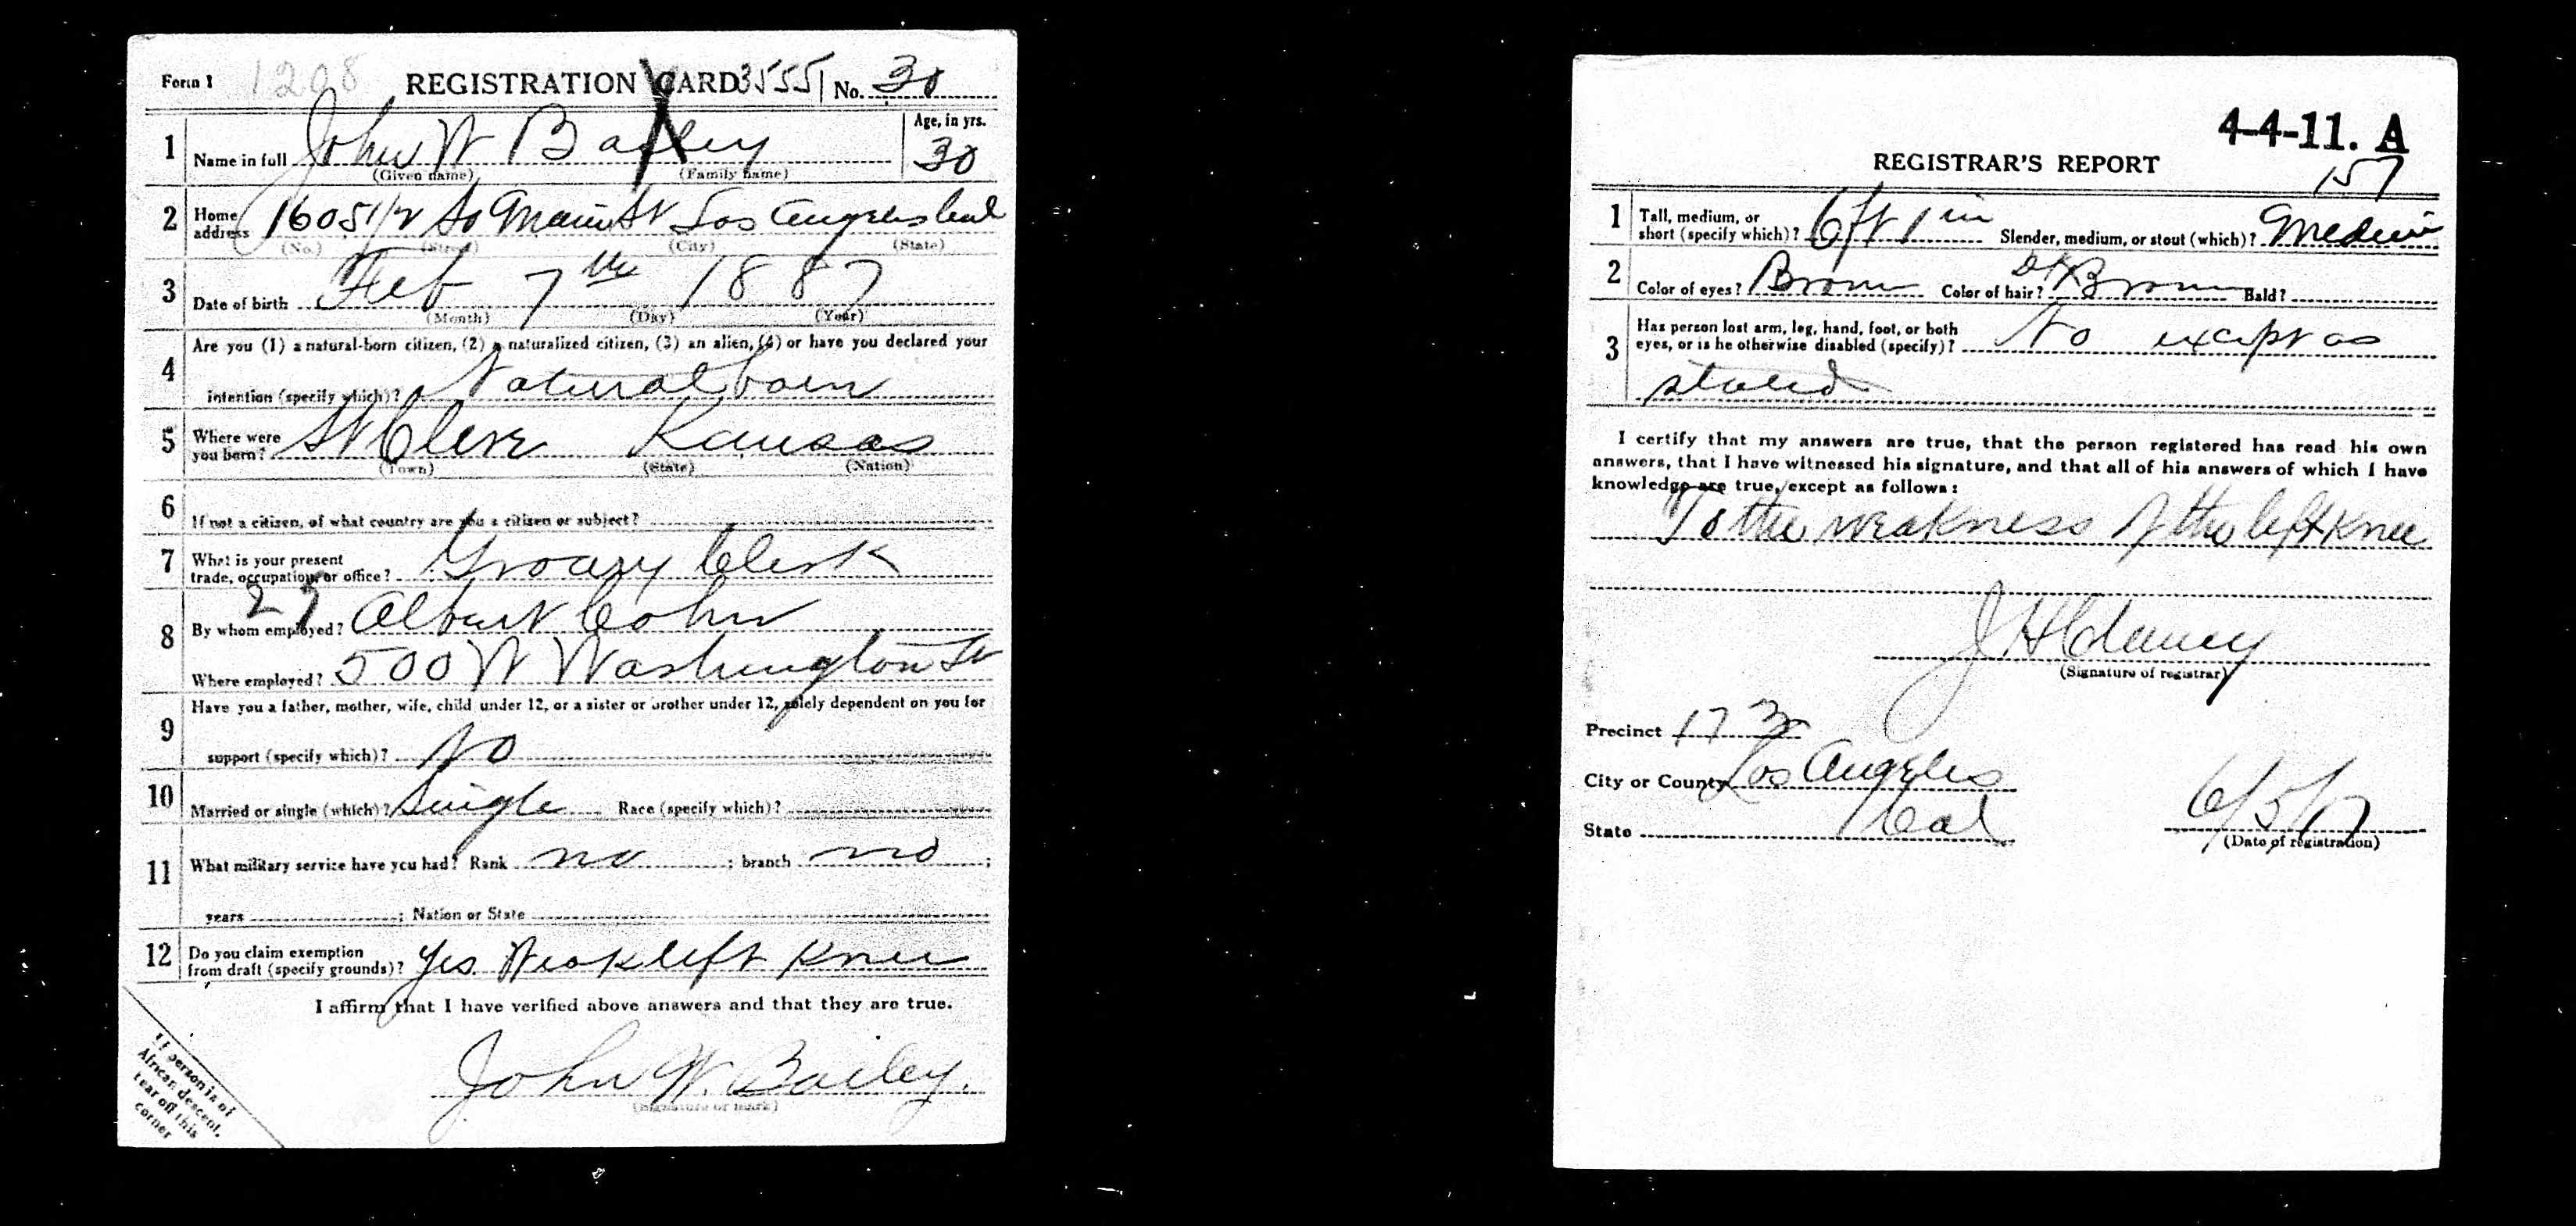 Form 1 1208 REGISTRATION CARD 3555 No. 30
1 Name in full John W Bailey Age, in yrs. 30
(Given name) (Family name)
2 Home address 1605 1/2 So Main St Los Angeles Cal
(No.) (Street) (City) (State)
3 Date of birth Feb 7th 1887
(Month) (Day) (Year)
4 Are you (1) a natural-born citizen, (2) a naturalized citizen, (3) an alien, (4) or have you declared your
intention (specify which)? Natural born
5 Where were you born? St Kansas
(Town) (State) (Nation)
6 If not a citizen, of what country are you a citizen or subject?
7 What is your present trade, occupation, or office? Grocery Clerk
27
8 By whom employed? Albert Cohn
Where employed? 500 W Washington St
9 Have you a father, mother, wife, child under 12, or a sister or brother under 12, solely dependent on you for
support (specify which)? No
10 Married or single (which)? Single Race (specify which)?
11 What military service have you had? Rank no ; branch no ;
years ; Nation or State
12 Do you claim exemption from draft (specify grounds)? Yes Weak left Knee
I affirm that I have verified above answers and that they are true.
John W. Bailey.
(Signature or mark)
If person is of
African descent,
tear off this
corner
4-4-11. A
REGISTRAR'S REPORT 157
1 Tall, medium, or short (specify which)? 6 ft 1 in Slender, medium, or stout (which)? Medium
2 Color of eyes? Brown Color of hair? Dk Brown Bald?
3 Has person lost arm, leg, hand, foot, or both
eyes, or is he otherwise disabled (specify)? No except as
stated
I certify that my answers are true, that the person registered has read his own
answers, that I have witnessed his signature, and that all of his answers of which I have
knowledge are true, except as follows:
To the weakness of the left Knee
J H Clancy
(Signature of registrar)
Precinct 173
City or County Los Angeles
State Cal 6/5/17
(Date of registration)